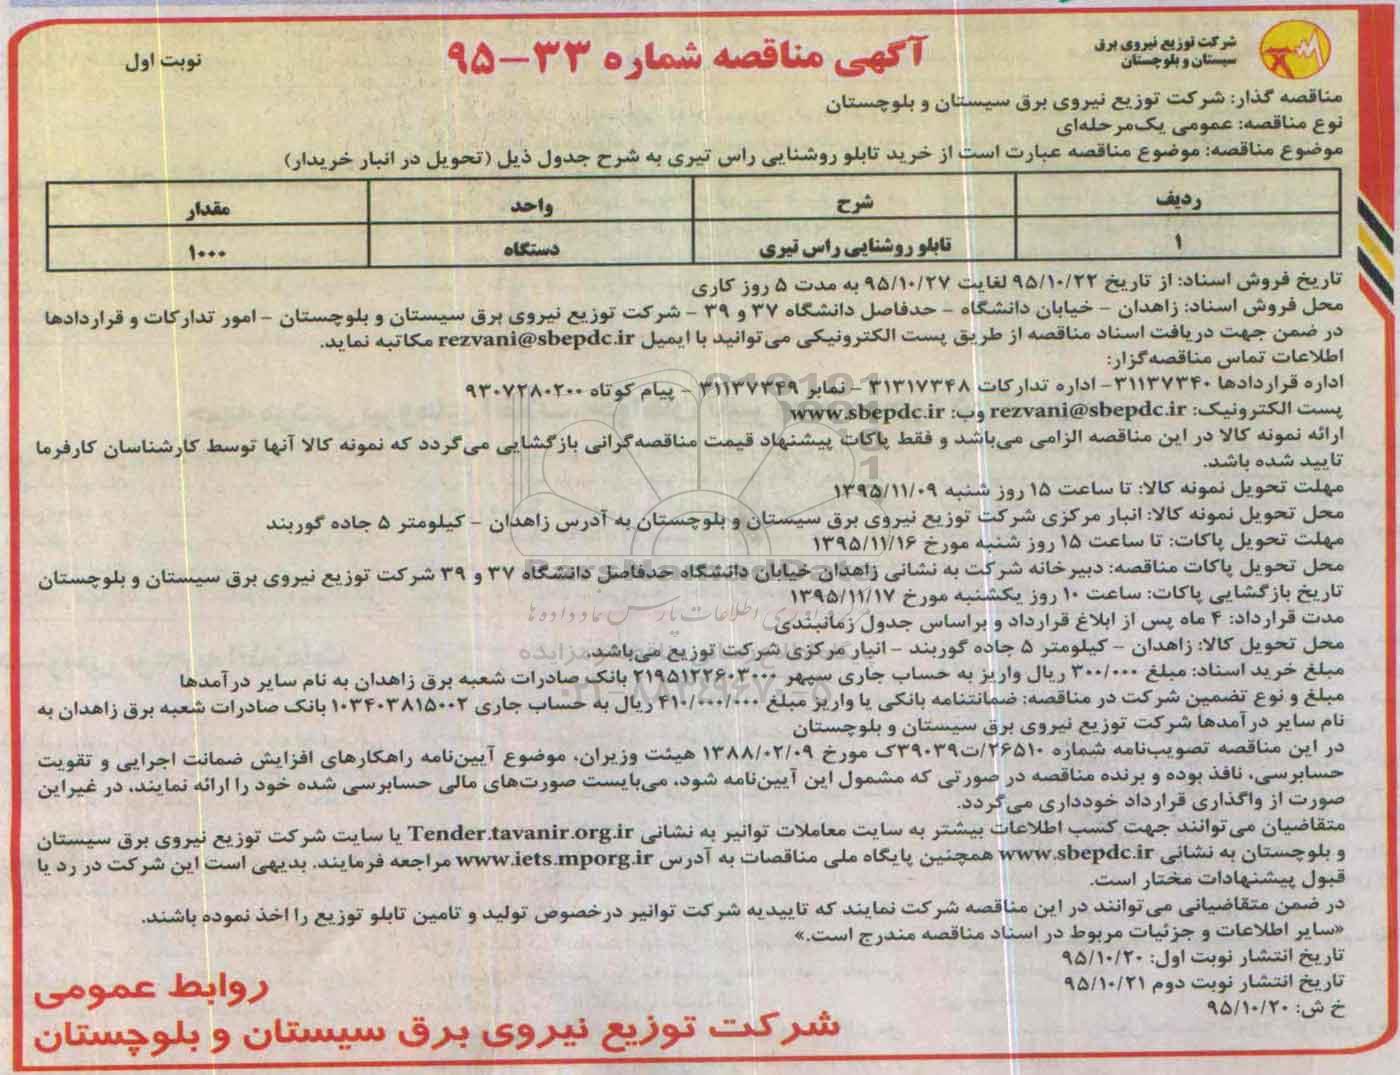 شرکت توزیع نیروی برق
سیستان و بلوچستان
آگهی مناقصه شماره ۳۳-۹۵
نوبت اول
مناقصه گذار: شرکت توزیع نیروی برق سیستان و بلوچستان
نوع مناقصه: عمومی یک‌مرحله‌ای
موضوع مناقصه: موضوع مناقصه عبارت است از خرید تابلو روشنایی راس تیری به شرح جدول ذیل (تحویل در انبار خریدار)
ردیف شرح واحد مقدار
۱ تابلو روشنایی راس تیری دستگاه ۱۰۰۰
تاریخ فروش اسناد: از تاریخ ۹۵/۱۰/۲۲ لغایت ۹۵/۱۰/۲۷ به مدت ۵ روز کاری
محل فروش اسناد: زاهدان - خیابان دانشگاه - حدفاصل دانشگاه ۳۷ و ۳۹ - شرکت توزیع نیروی برق سیستان و بلوچستان - امور تدارکات و قراردادها
در ضمن جهت دریافت اسناد مناقصه از طریق پست الکترونیکی می‌توانید با ایمیل rezvani@sbepdc.ir مکاتبه نماید.
اطلاعات تماس مناقصه‌گزار:
اداره قراردادها ۳۱۱۳۷۳۴۰- اداره تدارکات ۳۱۳۱۷۳۴۸ - نمابر ۳۱۱۳۷۳۴۹ - پیام کوتاه ۹۳۰۷۲۸۰۲۰۰
پست الکترونیک: rezvani@sbepdc.ir وب: www.sbepdc.ir
ارائه نمونه کالا در این مناقصه الزامی می‌باشد و فقط پاکات پیشنهاد قیمت مناقصه‌گرانی بازگشایی می‌گردد که نمونه کالا آنها توسط کارشناسان کارفرما
تایید شده باشد.
مهلت تحویل نمونه کالا: تا ساعت ۱۵ روز شنبه ۱۳۹۵/۱۱/۰۹
محل تحویل نمونه کالا: انبار مرکزی شرکت توزیع نیروی برق سیستان و بلوچستان به آدرس زاهدان - کیلومتر ۵ جاده گوربند
مهلت تحویل پاکات: تا ساعت ۱۵ روز شنبه مورخ ۱۳۹۵/۱۱/۱۶
محل تحویل پاکات مناقصه: دبیرخانه شرکت به نشانی زاهدان خیابان دانشگاه حدفاصل دانشگاه ۳۷ و ۳۹ شرکت توزیع نیروی برق سیستان و بلوچستان
تاریخ بازگشایی پاکات: ساعت ۱۰ روز یکشنبه مورخ ۱۳۹۵/۱۱/۱۷
مدت قرارداد: ۴ ماه پس از ابلاغ قرارداد و براساس جدول زمانبندی
محل تحویل کالا: زاهدان - کیلومتر ۵ جاده گوربند - انبار مرکزی شرکت توزیع می‌باشد.
مبلغ خرید اسناد: مبلغ ۳۰۰/۰۰۰ ریال واریز به حساب جاری سپهر ۲۱۹۵۱۲۲۶۰۳۰۰۰ بانک صادرات شعبه برق زاهدان به نام سایر درآمدها
مبلغ و نوع تضمین شرکت در مناقصه: ضمانتنامه بانکی یا واریز مبلغ ۴۱۰/۰۰۰/۰۰۰ ریال به حساب جاری ۱۰۳۴۰۳۸۱۵۰۰۲ بانک صادرات شعبه برق زاهدان به
نام سایر درآمدها شرکت توزیع نیروی برق سیستان و بلوچستان
در این مناقصه تصویب‌نامه شماره ۲۶۵۱۰/ت۳۹۰۳۹ک مورخ ۱۳۸۸/۰۲/۰۹ هیئت وزیران، موضوع آیین‌نامه راهکارهای افزایش ضمانت اجرایی و تقویت
حسابرسی، نافذ بوده و برنده مناقصه در صورتی که مشمول این آیین‌نامه شود، می‌بایست صورت‌های مالی حسابرسی شده خود را ارائه نمایند، در غیراین
صورت از واگذاری قرارداد خودداری می‌گردد.
متقاضیان می‌توانند جهت کسب اطلاعات بیشتر به سایت معاملات توانیر به نشانی Tender.tavanir.org.ir یا سایت شرکت توزیع نیروی برق سیستان
و بلوچستان به نشانی www.sbepdc.ir همچنین پایگاه ملی مناقصات به آدرس www.iets.mporg.ir مراجعه فرمایند. بدیهی است این شرکت در رد یا
قبول پیشنهادات مختار است.
در ضمن متقاضیانی می‌توانند در این مناقصه شرکت نمایند که تاییدیه شرکت توانیر درخصوص تولید و تامین تابلو توزیع را اخذ نموده باشند.
«سایر اطلاعات و جزئیات مربوط در اسناد مناقصه مندرج است.»
تاریخ انتشار نوبت اول: ۹۵/۱۰/۲۰
تاریخ انتشار نوبت دوم ۹۵/۱۰/۲۱
خ ش: ۹۵/۱۰/۲۰
روابط عمومی
شرکت توزیع نیروی برق سیستان و بلوچستان